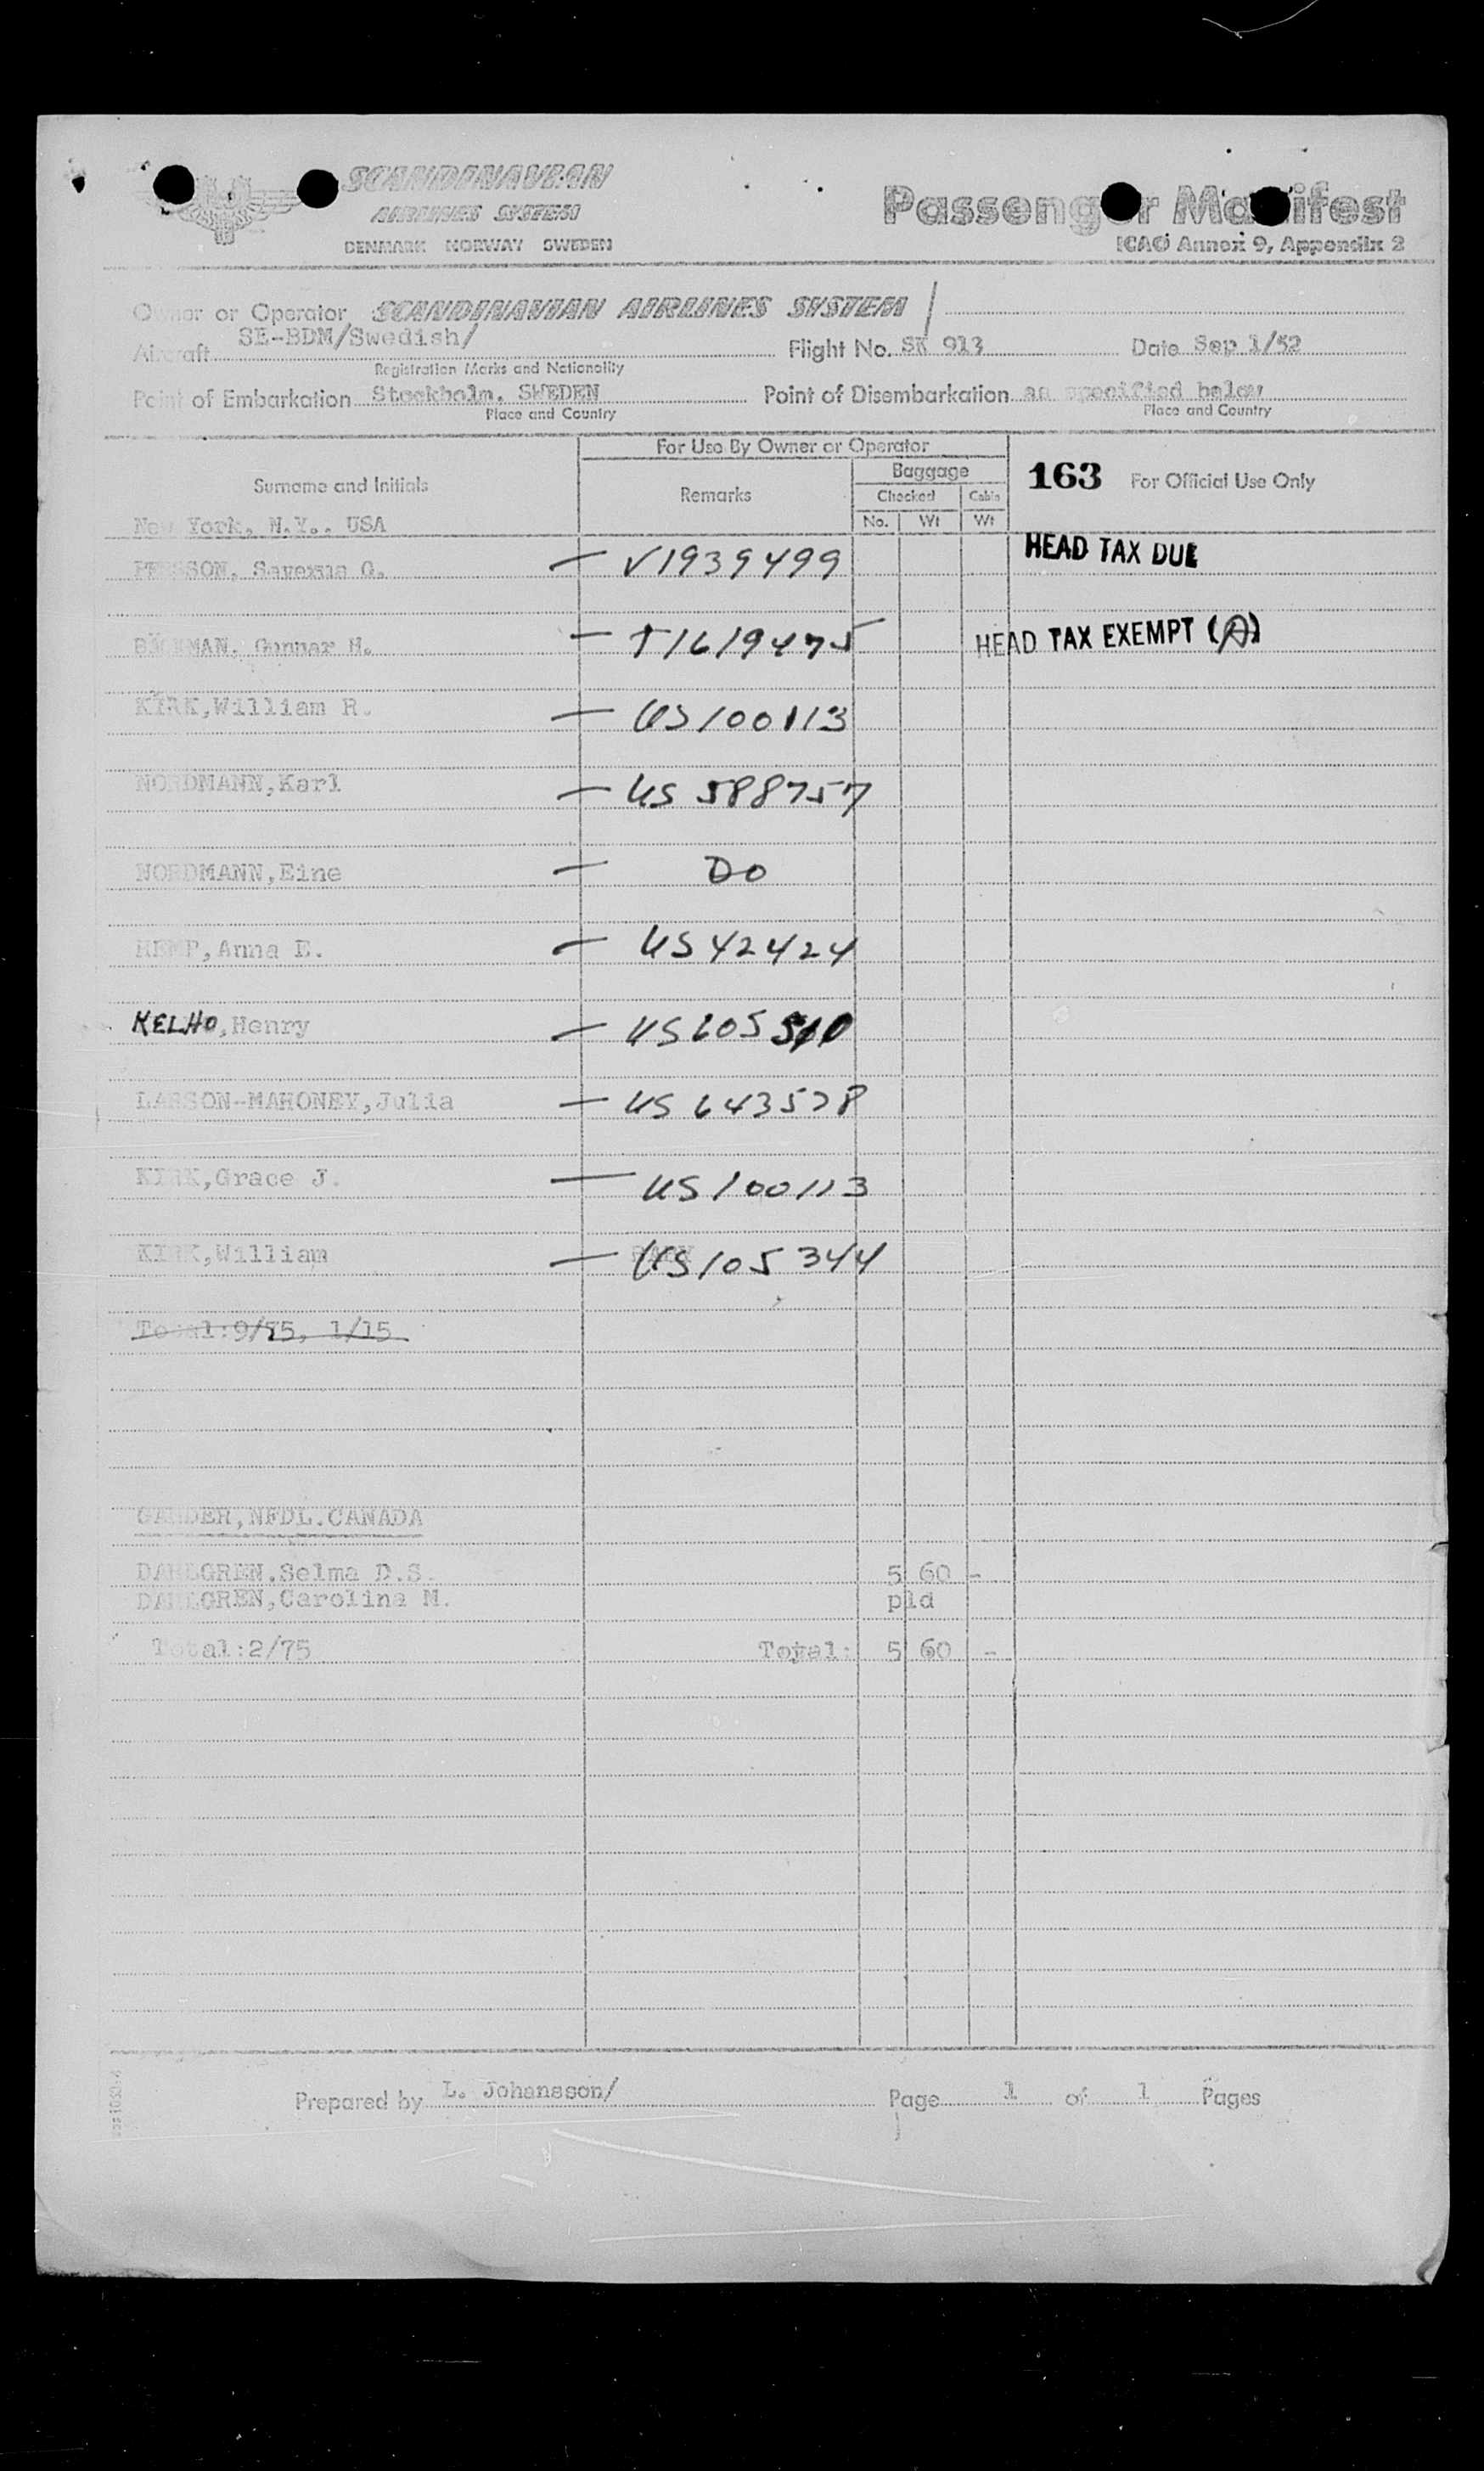 SCANDINAVIAN
AIRLINES SYSTEM
DENMARK NORWAY SWEDEN
Passenger Manifest
ICAO Annex 9, Appendix 2
Owner or Operator SCANDINAVIAN AIRLINES SYSTEM /
Aircraft SE-BDM/Swedish/ Flight No. SK 913 Date Sep 1/52
Registration Marks and Nationality
Point of Embarkation Stockholm, SWEDEN Point of Disembarkation as specified below
Place and Country Place and Country
For Use By Owner or Operator
Surname and Initials Remarks Baggage 163 For Official Use Only
Checked Cabin
No. Wt Wt
New York, N.Y.. USA
PERSSON, G. — V1939499 HEAD TAX DUE
BÄCKMAN, Gunnar H. — T1619475 HEAD TAX EXEMPT (A)
KIRK,William R. — US100113
NORDMANN,Karl — US 588757
NORDMANN,Eine — DO
HEMP,Anna E. — US42424
KELHO,Henry — US605510
LARSON-MAHONEY,Julia — US 643578
KIRK,Grace J. — US100113
KIRK,William — US105344
Total:9/75, 1/15
GANDER,NFDL.CANADA
DAHLGREN,Selma D.S. 5 60 -
DAHLGREN,Carolina M. pld
Total:2/75 Total: 5 60 -
Prepared by L. Johansson/ Page 1 of 1 Pages